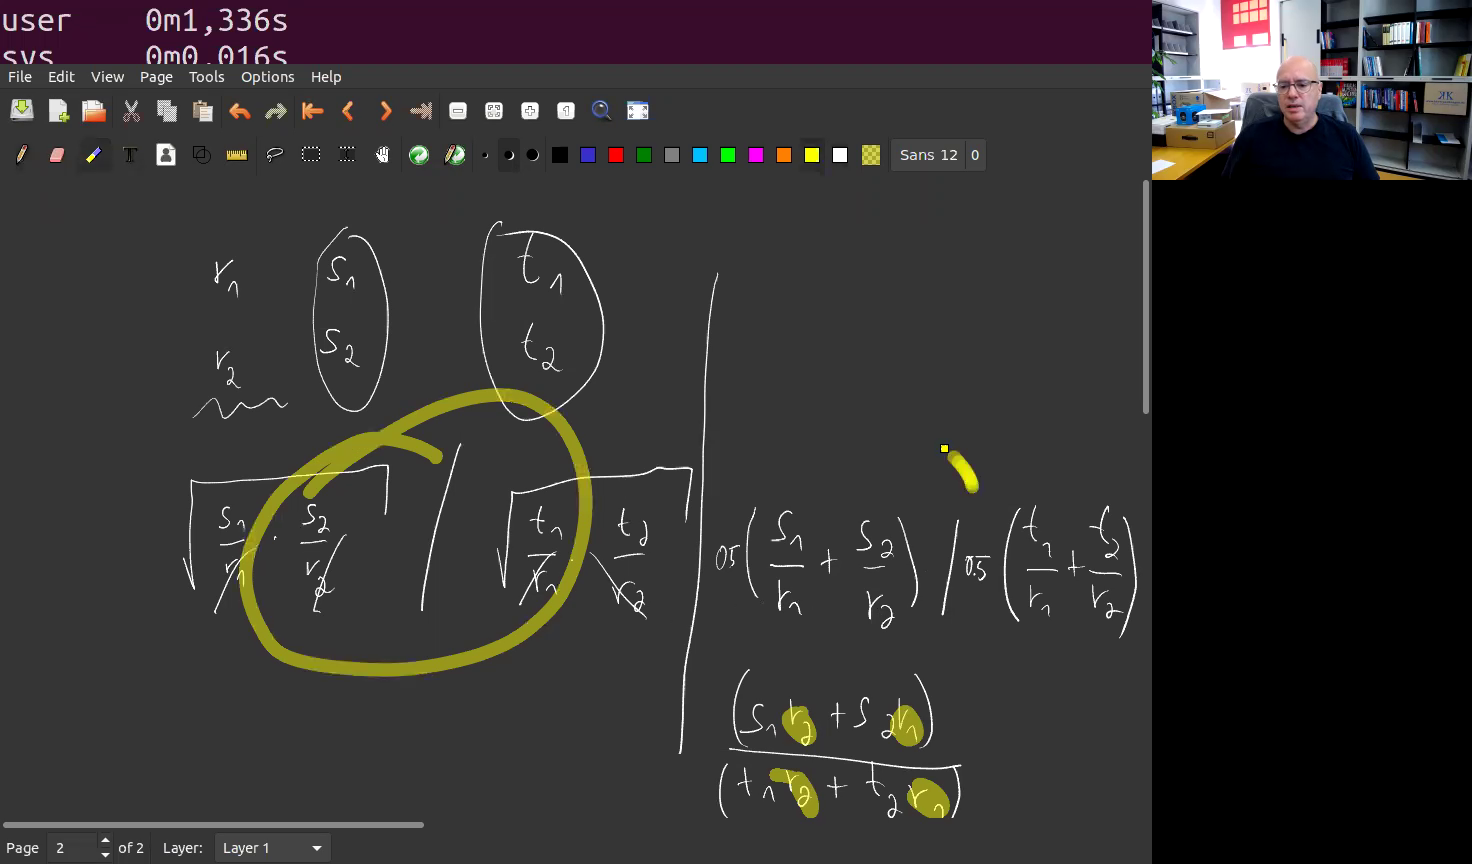 user 0m1,336s
sys 0m0,016s
File Edit View Page Tools Options Help
Sans 12 0
r1 s1 t1
r2 s2 t2
√(s1/r1 · s2/r2) / √(t1/r1 · t2/r2)
0.5 (s1/r1 + s2/r2) / 0.5 (t1/r1 + t2/r2)
(s1 r2 + s2 r1)
(t1 r2 + t2 r1)
Page 2 of 2 Layer: Layer 1